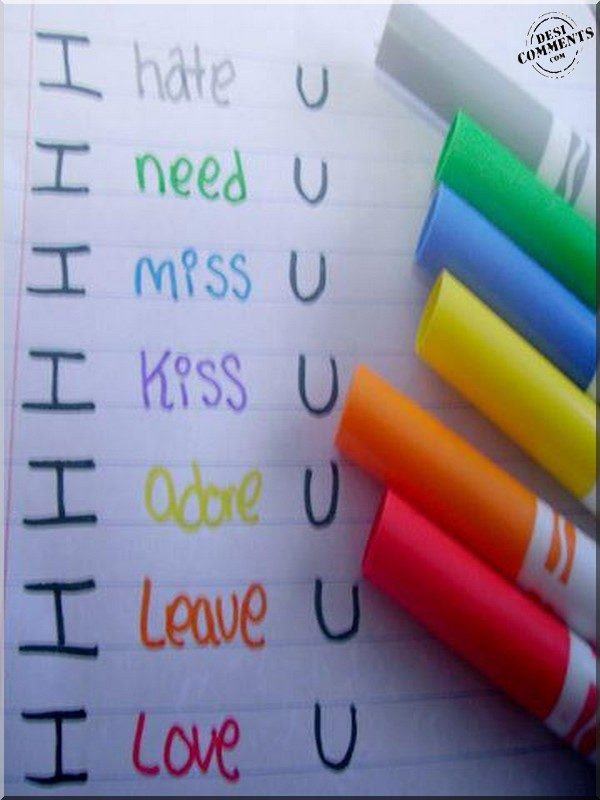 I hate U
I need U
I miss U
I Kiss U
I adore U
I Leave U
I Love U
DESI
COMMENTS
.COM